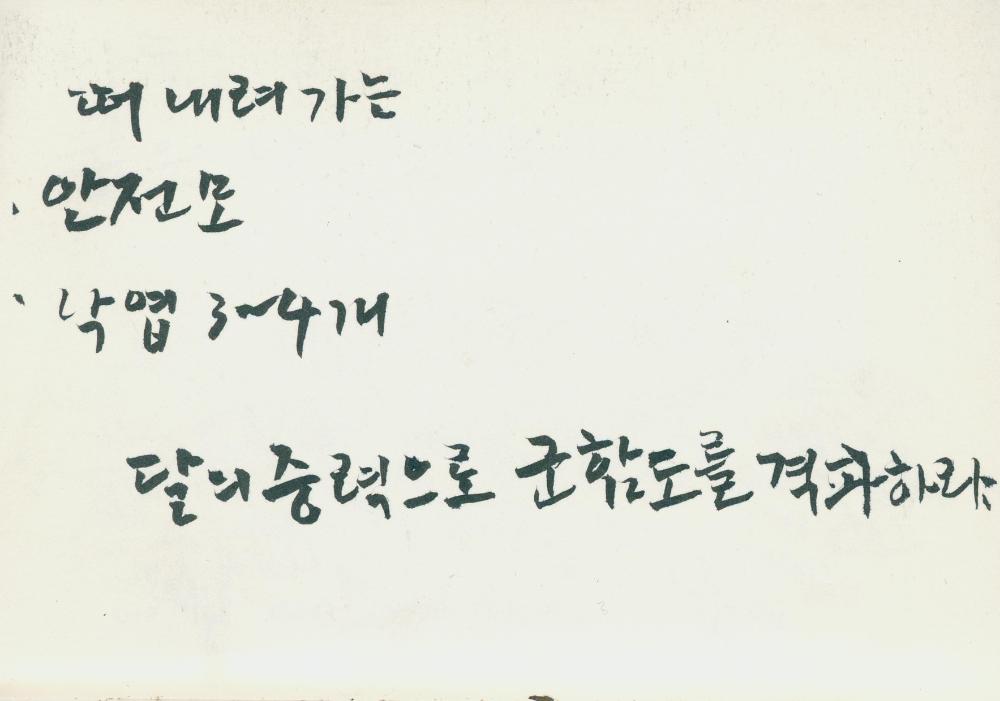 떠 내려 가는
· 안전모
· 낙엽 3~4개
달의 중력으로 군함도를 격파하라.